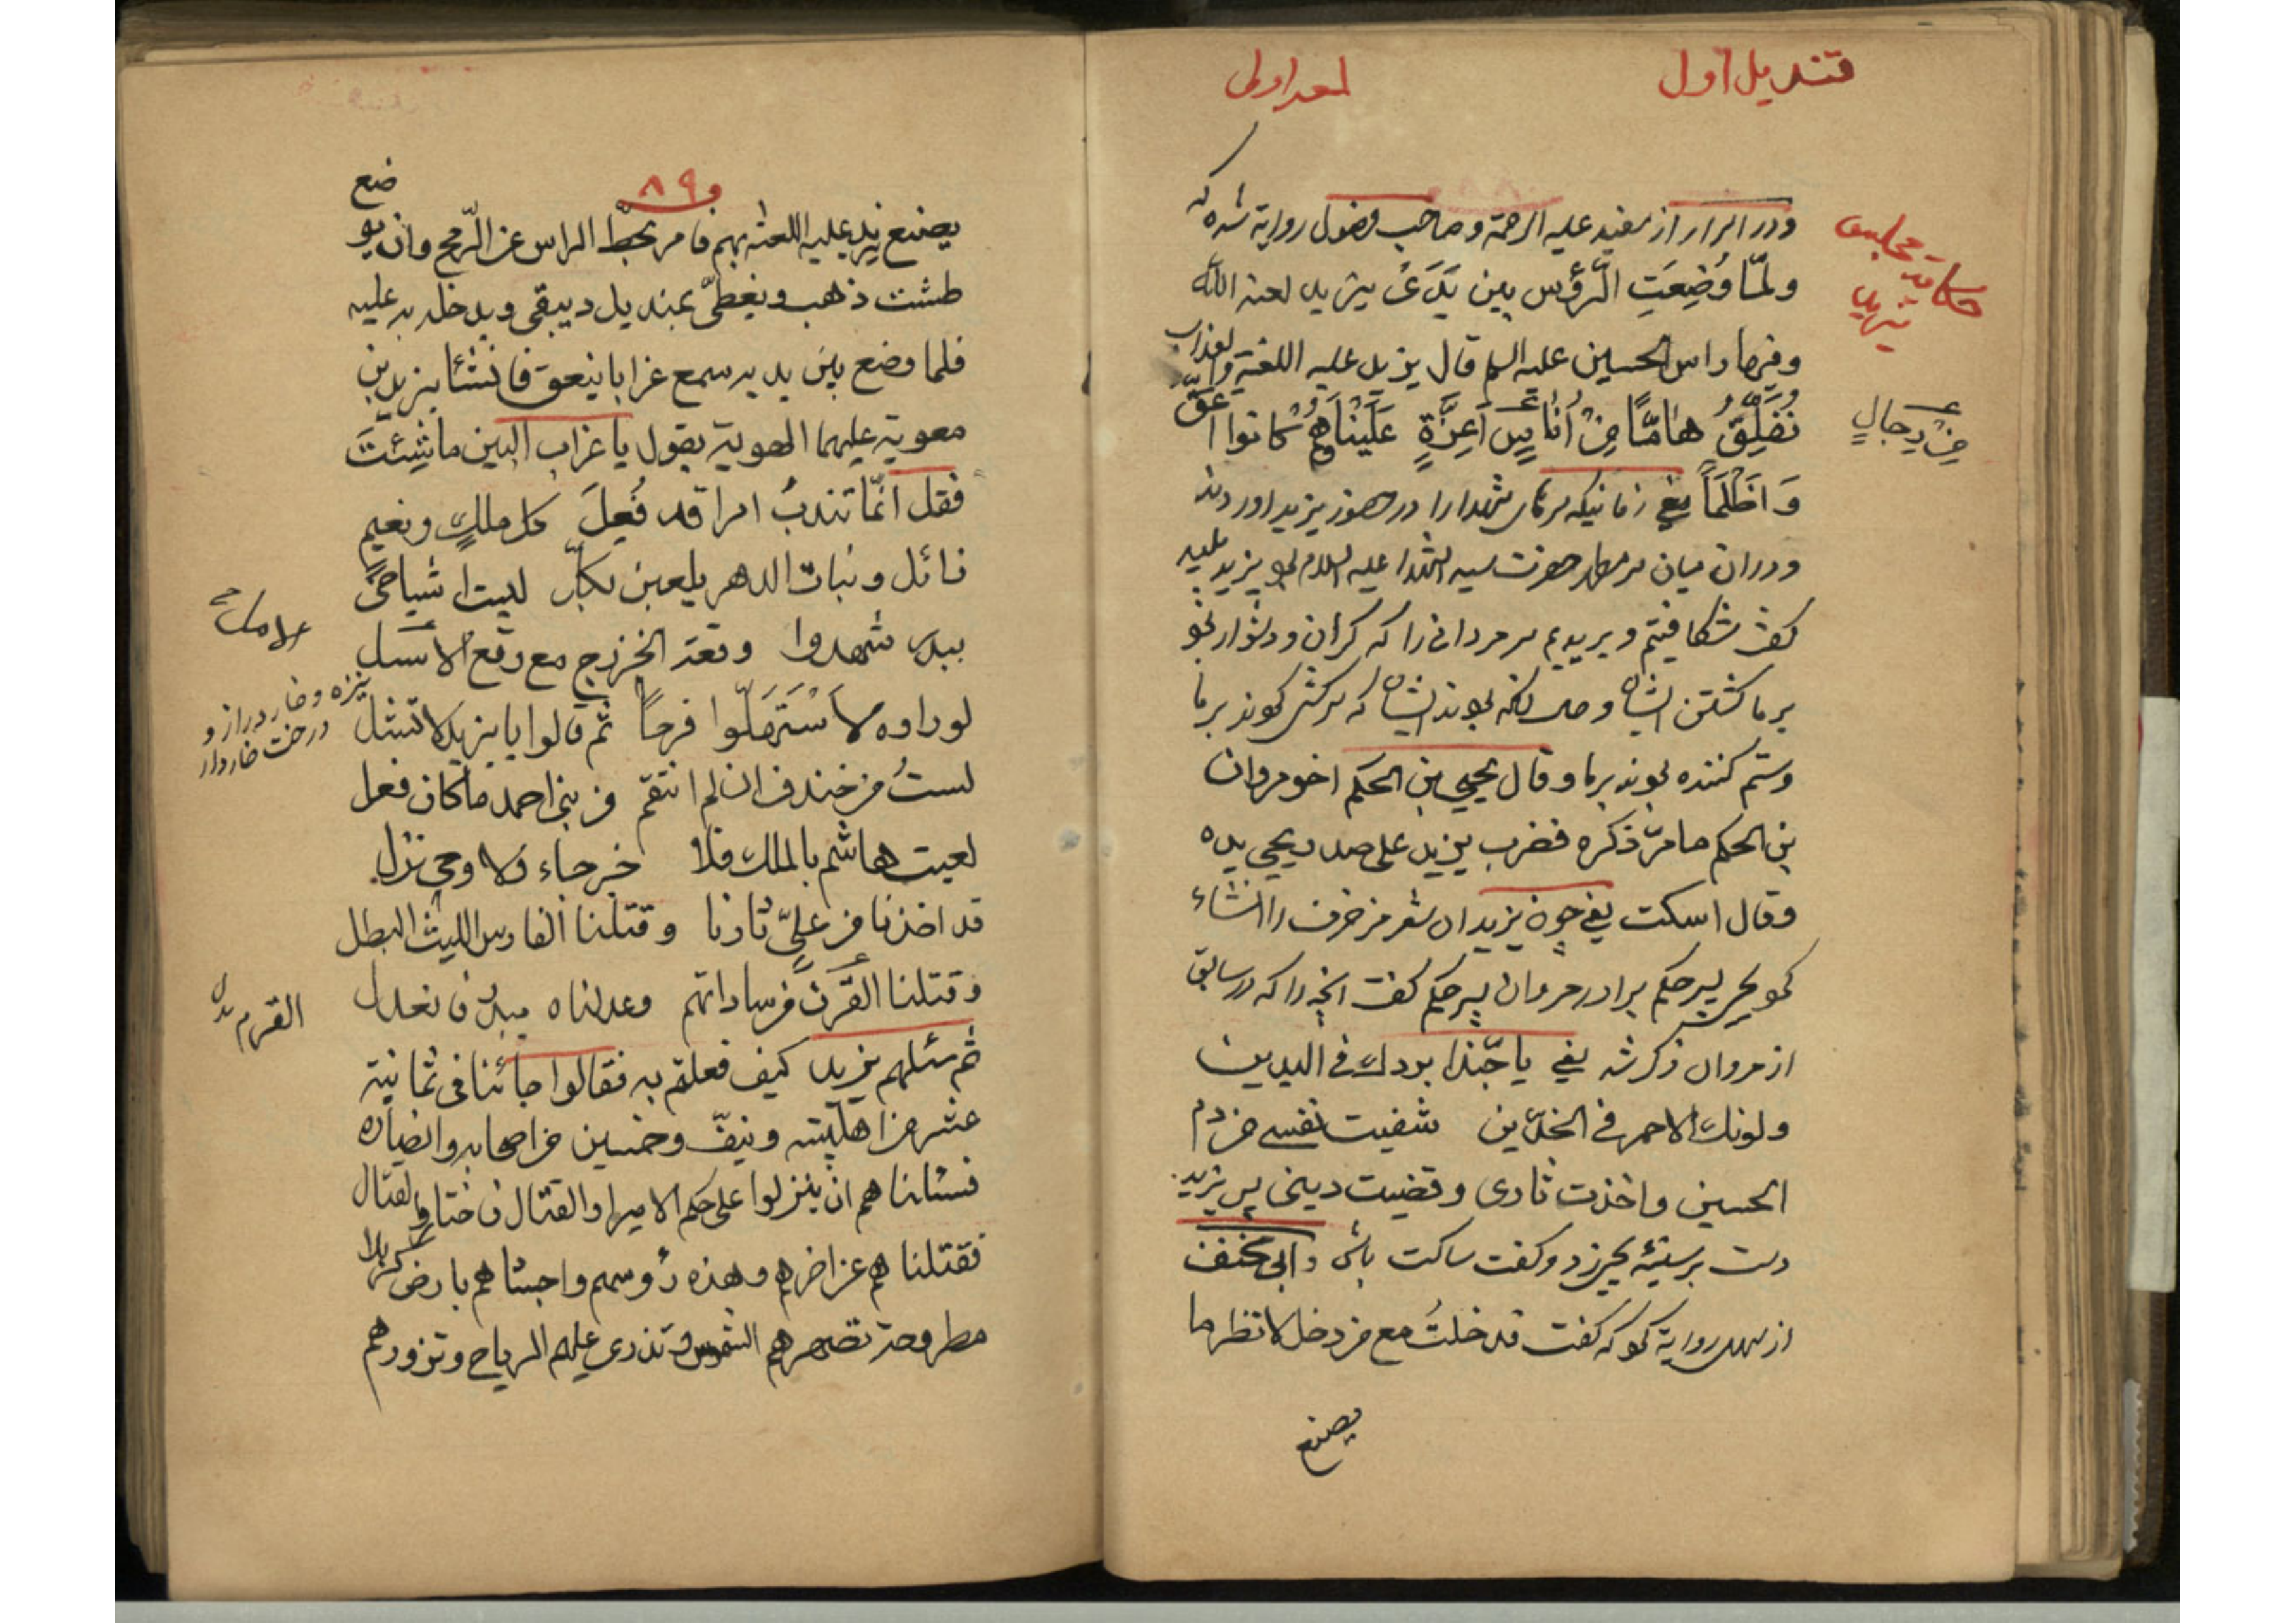 قندیل اول
لمعه اولی
ودر اسرار از مفید علیه الرحمة وصاحب فصول روایة شده که
ولمّا وُضِعَتِ الرّؤس بین یَدَیْ یزید لعنه الله
وفیها راس الحسین علیه السلم قال یزید علیه اللعنة والعذاب
نُفَلِّقُ هامًّا مِنْ أُناسٍ اَعِزَّةٍ عَلَیْنا وَهُمْ کانوا اَعَقَّ
وَاَظْلَمَاً یعنی زمانیکه سرهای شهدا را در حضور یزید اوردند
ودران میان سر مطهر حضرت سید الشهدا علیه السلام بود یزید پلید
گفت شکافتیم وبریدیم سر مردانی را که گران ودشوار بود
بر ما کشتن ایشان وحال انکه بودند ایشان که سرکش بودند بر ما
وستم کننده بودند بر ما وقال یحیی بن الحکم اخو مروان
بن الحکم ما مرّ ذکره فضرب یزید علی صدر یحیی یده
وقال اسکت یعنی چون یزید ان شعر مزخرف را انشاء
نمود یحیی پسر حکم برادر مروان پسر حکم گفت انچه را که در سابق
از مروان ذکر شد یعنی یا حبّذا بردک فی الیدین
ولونک الاحمر فی الخدّین شفیت نفسی من دم
الحسین واخذت ثاری وقضیت دینی پس یزید
دست بر سینهٔ یحیی زد وگفت ساکت باش وابی مخنف
از سهل روایة نمود که گفت قد خلتُ مع من دخل لانظر ما
یصنع
حکایت مجلس
یزید
مِنْ رِجالٍ
۸۹
یصنع یزید علیه اللعنه بهم فامر بحطّ الراس عن الرّمح وان یو
ضع
طشت ذهب ویغطّی بمندیل دیبقی ویدخل به علیه
فلما وضع بین یدیه سمع غرابا ینعق فانشأ یزید بن
معویة علیهما الهویة یقول یا غراب البین ما شِئْتَ
فقل انّما تندبُ امرا قد فُعِلَ کل ملکٍ ونعیمٍ
زائل وبنات الدهر یلعبن بکلّ لیت اشیاخی
ببدر شهدوا وقعة الخزرج مع وقع الاسل
لو راوه لاَسْتَهَلّوا فرحاً ثم قالوا یا یزید لا تشل
لستُ من خندف ان لم انتقم من بنی احمد ما کان فعل
لعبت هاشم بالملک فلا خبر جاء ولا وحی نزل
قد اخذنا من علیّ ثارنا وقتلنا الفارس اللیث البطل
وقتلنا القرن من ساداتهم وعدلناه ببدر فانعدل
ثم سئلهم یزید کیف فعلتم به فقالوا جائنا فی ثمانیة
عشر من اهلبیته ونیفّ وخمسین من اصحابه وانصاره
فسئلناهم ان ینزلوا علی حکم الامیر او القتال فاختاروا القتال
فقتلناهم عن اخرهم وهذه رؤسهم واجسامهم بارض کربلا
مطروحة تصهرهم الشمس وتذری علیهم الریاح وتزورهم
نیزه وخار دراز و
درخت خاردار
القرم بدل